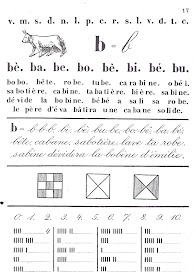 17
v. m. s. d. n. l. p. c. r. s. l. v. d. t. c.
b = b
bê. ba. be. bo. bê. bi. bé. bu.
bobo. bête. robe. tube. carabine. obéi.
sabotière. cabine. tabatière. bière. sabine.
dévide la bobine. bébé a sali sa robe.
le père d'éva bâtira une cabane solide.
b = b b b. bi. bê. bu. be. bo. bé. ba. bè
bête, cabane, sabotière, lave ta robe,
sabine dévidera la bobine d'émilie,
0. 1. 2. 3. 4. 5. 6. 7. 8. 9. 10.